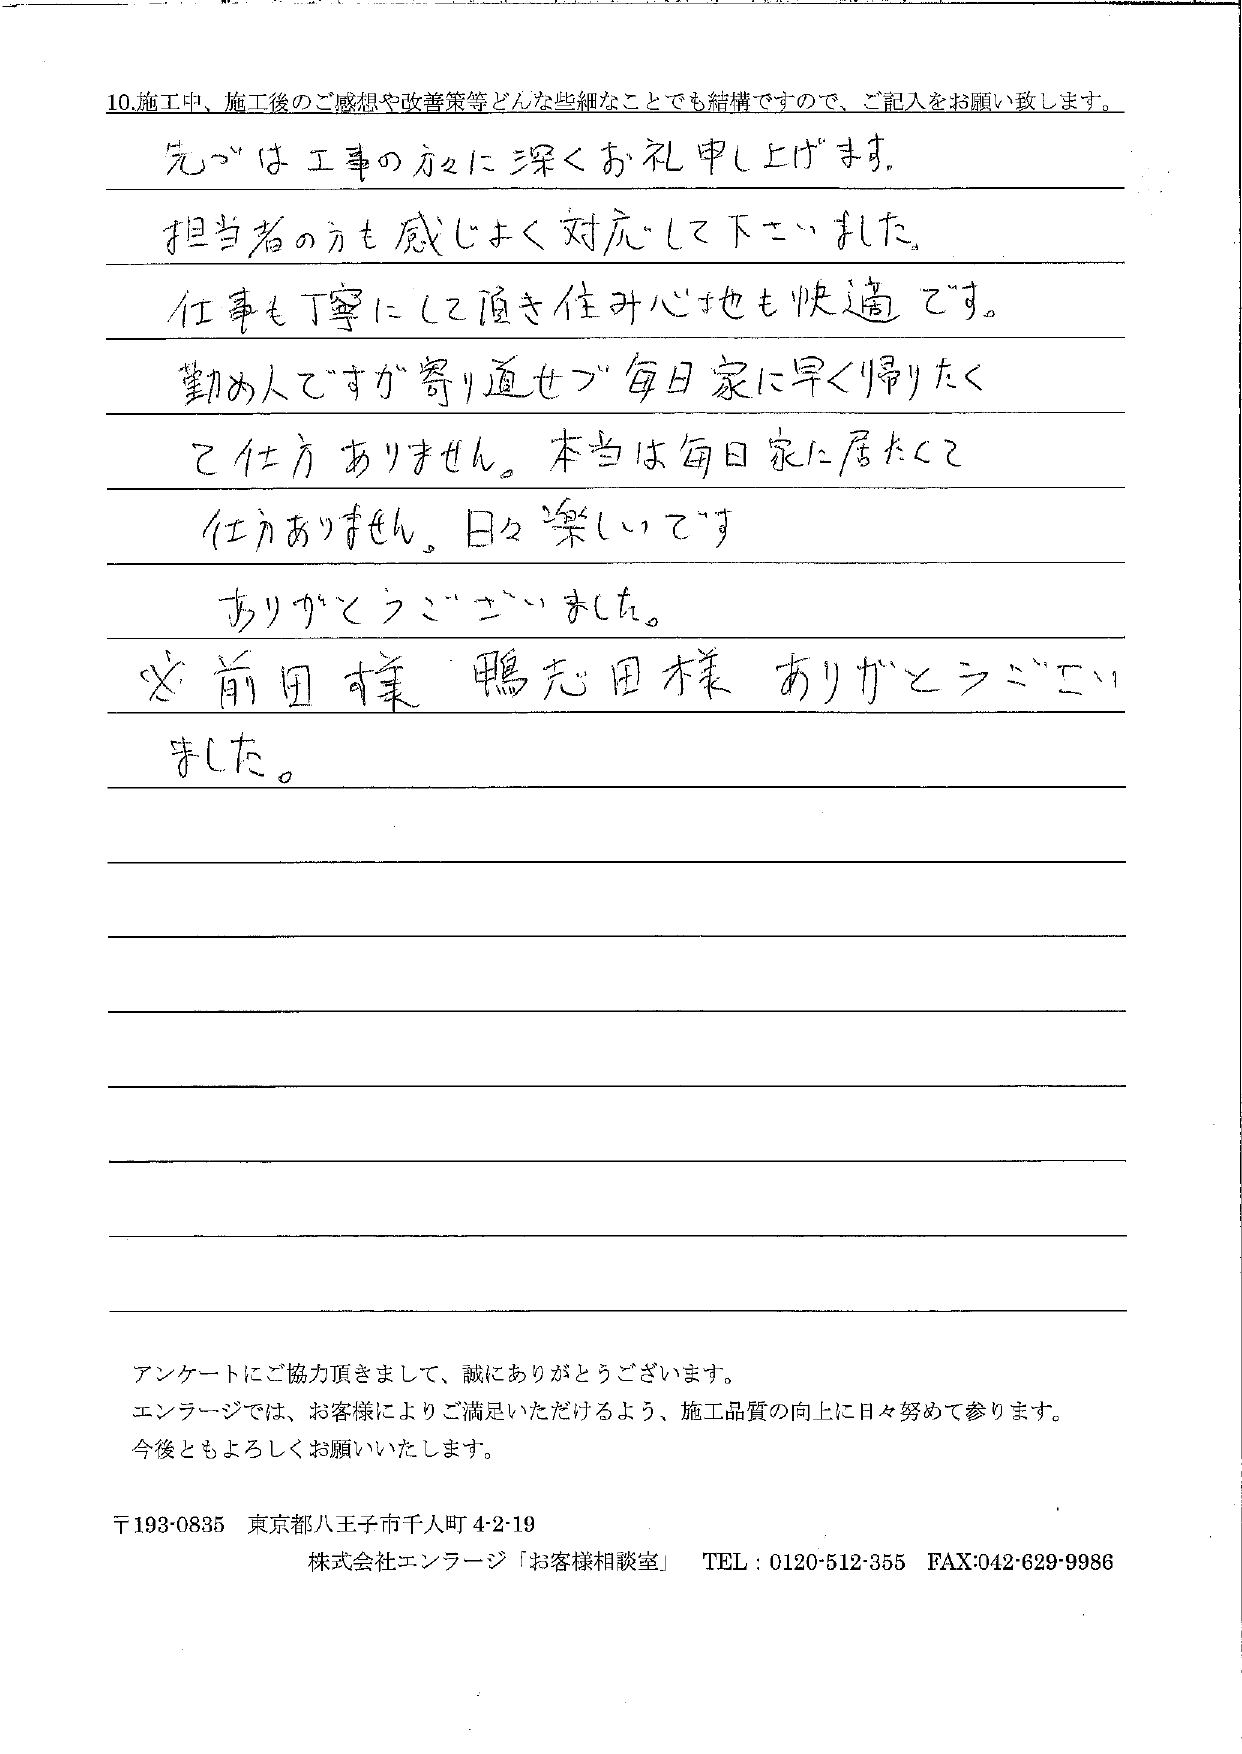 10.施工中、施工後のご感想や改善策等どんな些細なことでも結構ですので、ご記入をお願い致します。
先づは工事の方々に深くお礼申し上げます。
担当者の方も感じよく対応して下さいました。
仕事も丁寧にして頂き住み心地も快適です。
勤め人ですが寄り道せづ毎日家に早く帰りたく
て仕方ありません。本当は毎日家に居たくて
仕方ありません。日々楽しいです
ありがとうございました。
※前田様 鴨志田様 ありがとうござい
ました。
アンケートにご協力頂きまして、誠にありがとうございます。
エンラージでは、お客様によりご満足いただけるよう、施工品質の向上に日々努めて参ります。
今後ともよろしくお願いいたします。
〒193-0835 東京都八王子市千人町 4-2-19
株式会社エンラージ「お客様相談室」 TEL : 0120-512-355 FAX:042-629-9986